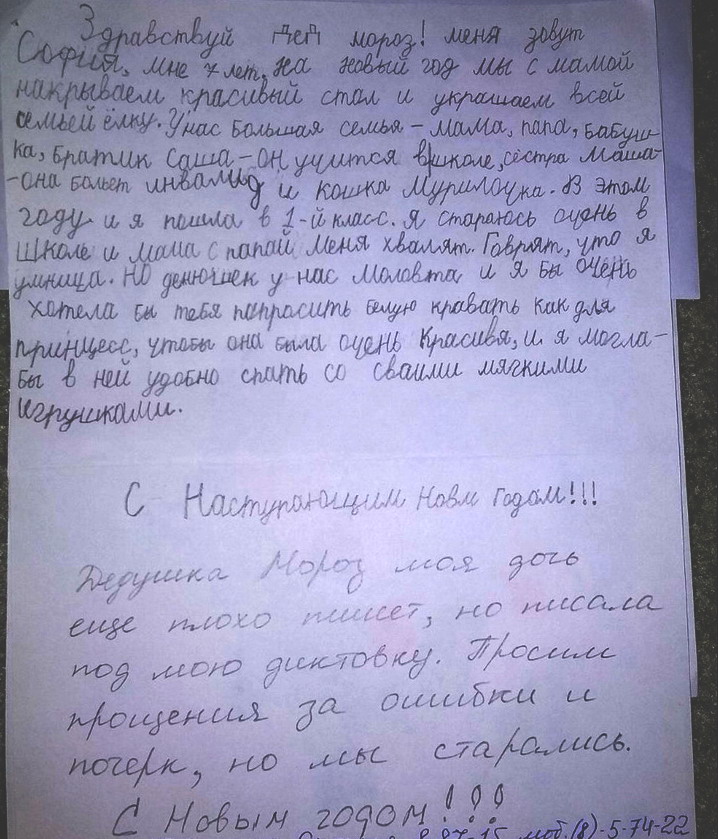 Здравствуй дед мороз! меня зовут
София, мне 7 лет, на новый год мы с мамой
накрываем красивый стал и украшаем всей
семьей ёлку. У нас большая семья - мама, папа, бабуш-
ка, братик Саша - он учится в школе, сестра Маша -
- она бальет инвалид и кошка Мурилочка. В этом
году и я пошла в 1-й класс. Я стараюсь очень в
школе и мама с папай меня хвалят. Говрят, что я
умница. Но денюшек у нас маловта и я бы очень
хотела бы тебя папросить белую кравать как для
принцесс, чтобы она была очень красивя, и я могла-
бы в ней удобно спать со сваими мягкими
игрушками.
С Наступающим Новм Годом!!!
Дедушка Мороз моя дочь
еще плохо пишет, но писала
под мою диктовку. Просим
прощения за ошибки и
почерк, но мы старались.
С Новым годом!!!
моб.(8)-5-74-22